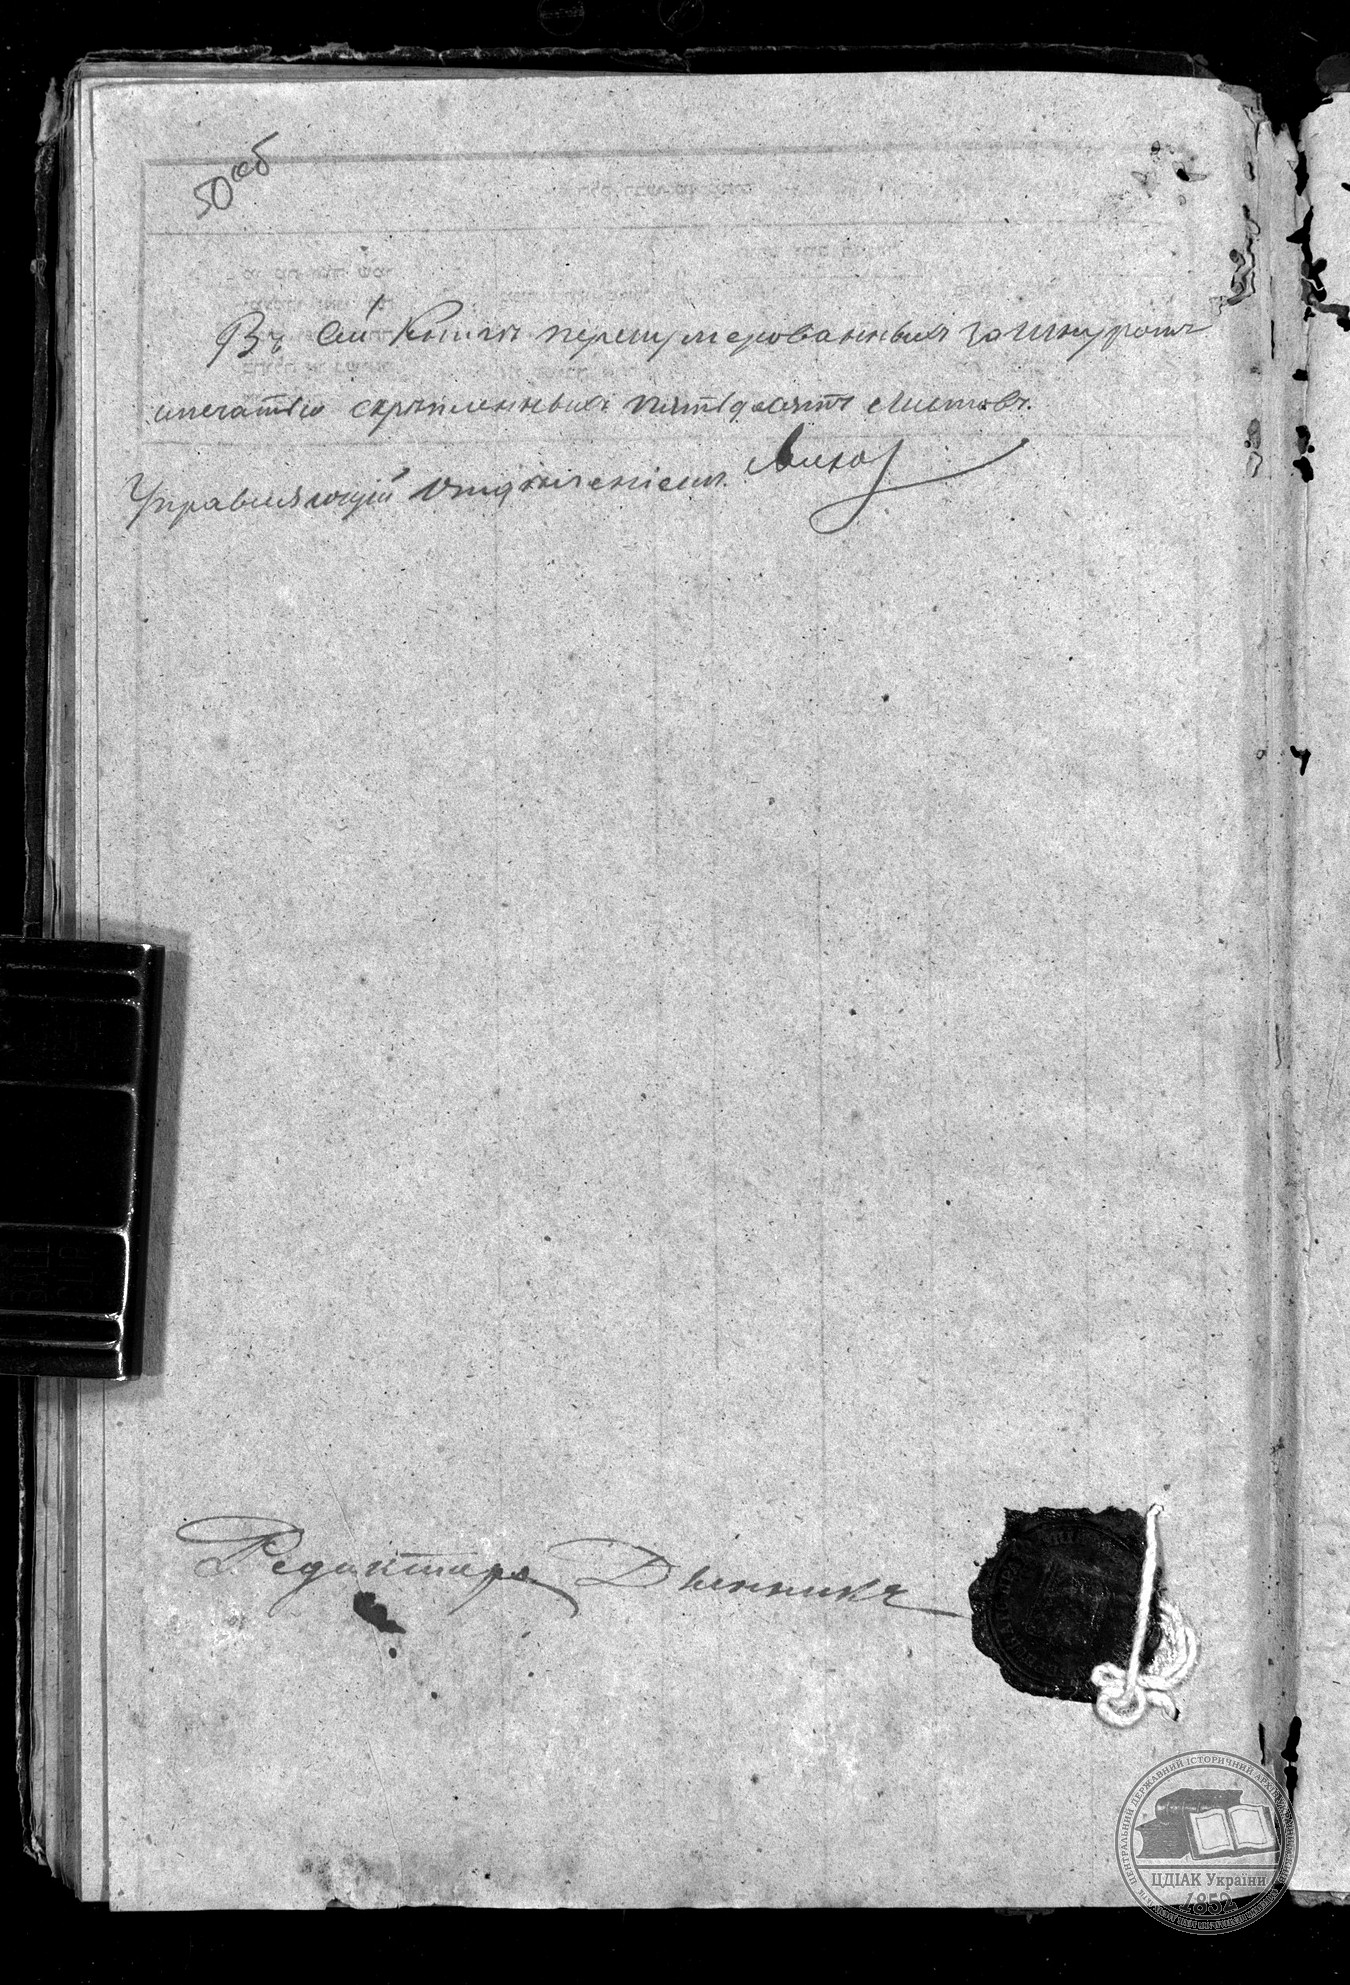 50 об
Въ сей книгѣ перенумерованныхъ зашнуров.
и печатью скрѣпленныхъ пятьдесятъ листовъ.
Управляющій отдѣленіемъ
Редакторъ Дынникъ
ЦЕНТРАЛЬНИЙ ДЕРЖАВНИЙ ІСТОРИЧНИЙ АРХІВ
ЦДІАК України
1852